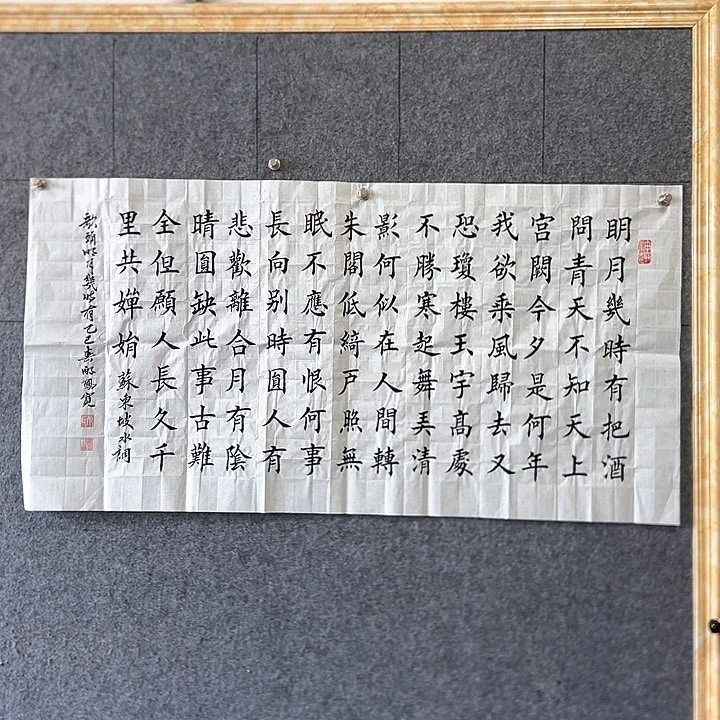 明月幾時有把酒
問青天不知天上
宮闕今夕是何年
我欲乘風歸去又
恐瓊樓玉宇髙處
不勝寒起舞弄清
影何似在人間轉
朱閣低綺戶照無
眠不應有恨何事
長向别時圓人有
悲歡離合月有陰
晴圓缺此事古難
全但願人長久千
里共嬋娟 蘇東坡水調
歌頭明月幾時有乙巳春